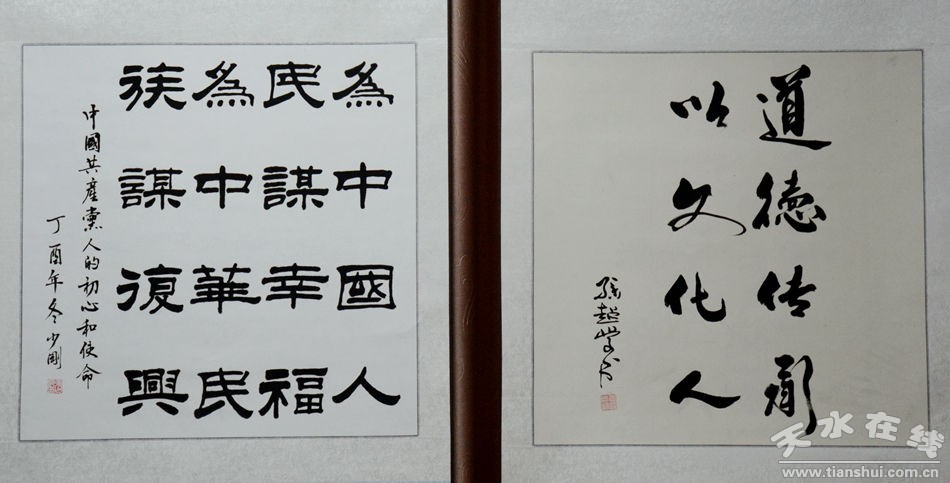 為中國人
民謀幸福
為中華民
族謀復興
中國共產黨人的初心和使命
丁酉年冬少剛
道德传承
以文化人
天水在线
www.tianshui.com.cn